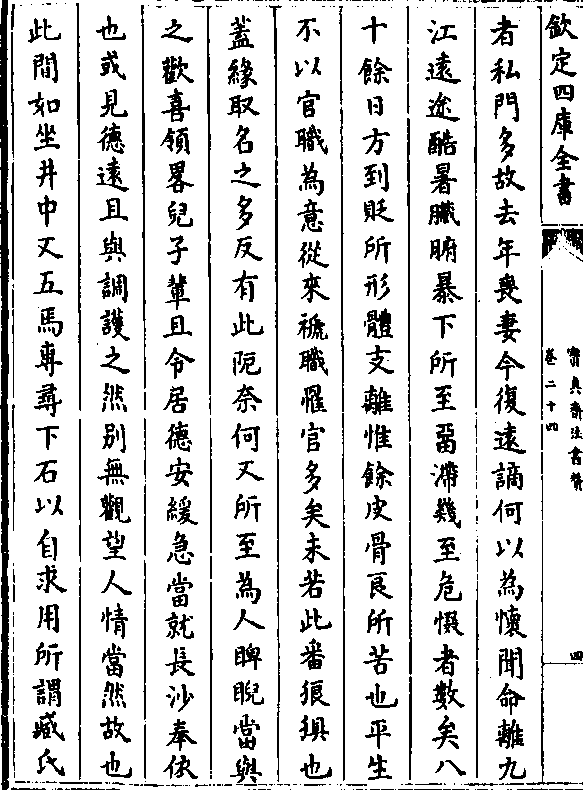 欽定四庫全書
寶真齋法書贊
卷二十四
四
者私門多故去年喪妻今復遠謫何以為懷聞命離九
江遠途酷暑臟腑暴下所至畱滯幾至危惙者數矣八
十餘日方到貶所形體支離惟餘皮骨良所苦也平生
不以官職為意從來褫職罷官多矣未若此番狼狽也
蓋緣取名之多反有此阨奈何又所至為人睥睨當與
之歡喜領畧兒子輩且令居德安緩急當就長沙奉依
也或見德遠且與調護之然別無觀望人情當然故也
此間如坐井中又五馬專尋下石以自求用所謂臧氏